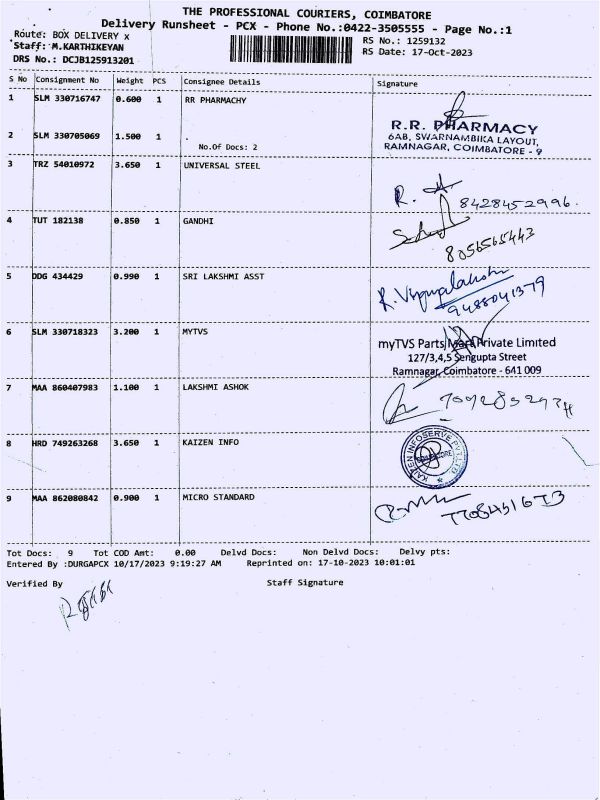 THE PROFESSIONAL COURIERS, COIMBATORE
Delivery Runsheet - PCX - Phone No.:0422-3505555 - Page No.:1
Route: BOX DELIVERY x
RS No.: 1259132
Staff: M.KARTHIKEYAN
RS Date: 17-Oct-2023
DRS No.: DCJB125913201
S No Consignment No Weight PCS Consignee Details Signature
1 SLM 330716747 0.600 1 RR PHARMACHY
R.R. PHARMACY
2 SLM 330705069 1.500 1 .
6AB, SWARNAMBIKA LAYOUT,
No.Of Docs: 2
RAMNAGAR, COIMBATORE - 9
3 TRZ 54010972 3.650 1 UNIVERSAL STEEL
8428452996.
4 TUT 182138 0.850 1 GANDHI
8056565443
5 DDG 434429 0.990 1 SRI LAKSHMI ASST
9488041379
6 SLM 330718323 3.200 1 MYTVS
myTVS Parts Mart Private Limited
127/3,4,5 Sengupta Street
Ramnagar, Coimbatore - 641 009
7 MAA 860407983 1.100 1 LAKSHMI ASHOK
8 HRD 749263268 3.650 1 KAIZEN INFO
KAIZEN INFOSERVE PVT LTD
COIMBATORE
9 MAA 862080842 0.900 1 MICRO STANDARD
Tot Docs: 9 Tot COD Amt: 0.00 Delvd Docs: Non Delvd Docs: Delvy pts:
Entered By :DURGAPCX 10/17/2023 9:19:27 AM Reprinted on: 17-10-2023 10:01:01
Verified By Staff Signature